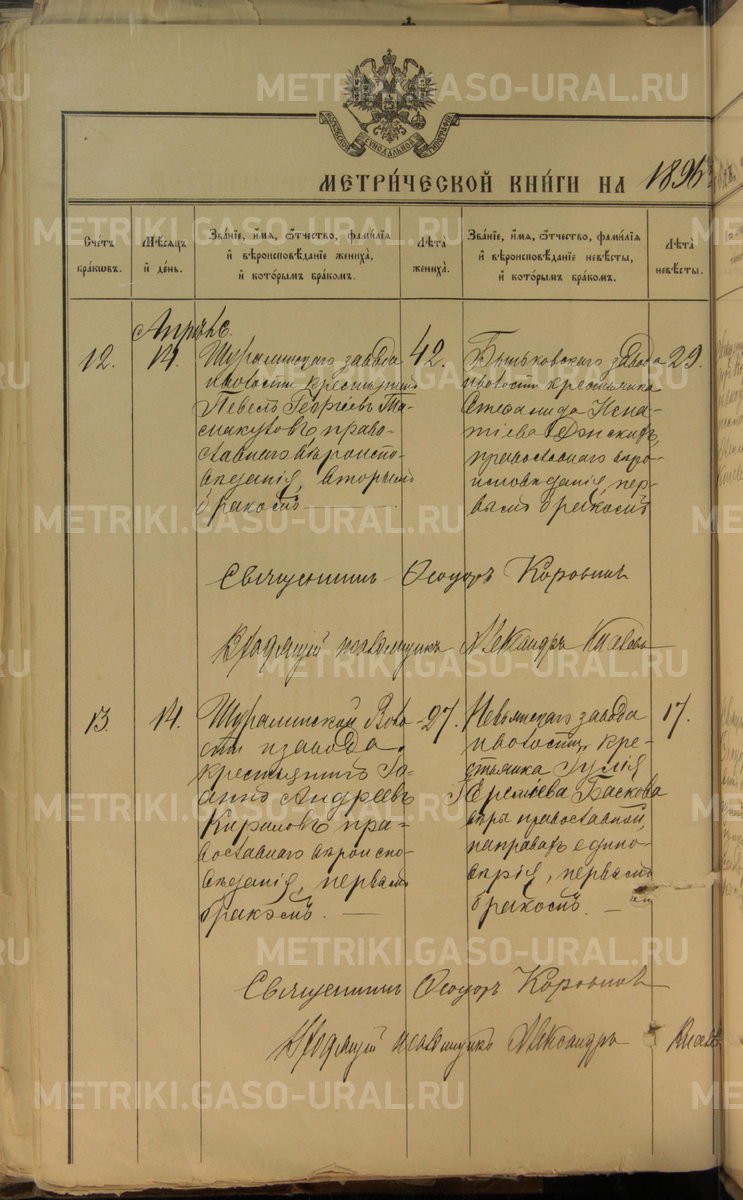 МОСКОВСКОЙ СѴНОДАЛЬНОЙ ТИПОГРАФІИ
МЕТРИ́ЧЕСКОЙ КНИ́ГИ НА 1896
Сче́тъ бра́кѡвъ.
Мѣ́сѧцъ и҆ де́нь.
Зва́нїе, и҆́мѧ, ѻ҆́тчество, фами́лїѧ и҆ вѣроисповѣ́данїе жениха̀, и҆ кото́рымъ бра́комъ.
Лѣ́та жениха̀.
Зва́нїе, и҆́мѧ, ѻ҆́тчество, фами́лїѧ и҆ вѣроисповѣ́данїе невѣ́сты, и҆ кото́рымъ бра́комъ.
Лѣ́та невѣ́сты.
Апрѣль.
12.
14.
Шуралинскаго завода
и волости крестьянинъ
Павелъ Георгіевъ
православнаго вѣроиспо-
вѣданія, вторымъ
бракомъ
42.
Быньковскаго завода
и волости крестьянка
Стефанида Игна-
тіева
православнаго вѣро-
исповѣданія, пер-
вымъ бракомъ
29.
Священникъ Ѳеодоръ Коровинъ
псаломщикъ Александръ
13.
14.
Шуралинской Воло-
сти и завода,
крестьянинъ Іо-
аннъ Андреевъ
Кириловъ, пра-
вославнаго вѣроиспо-
вѣданія, первымъ
бракомъ.
27.
Невьянскаго завода
и волости, кре-
стьянка Іулія
Ереміева Баскова
вѣры православной,
на правахъ едино-
вѣрія, первымъ
бракомъ.
17.
Священникъ Ѳеодоръ Коровинъ
псаломщикъ Александръ
METRIKI.GASO-URAL.RU
METRIKI.GASO-URAL.RU
METRIKI.GASO-URAL.RU
METRIKI.GASO-URAL.RU
METRIKI.GASO-URAL.RU
METRIKI.GASO-URAL.RU
METRIKI.GASO-URAL.RU
METRIKI.GASO-URAL.RU